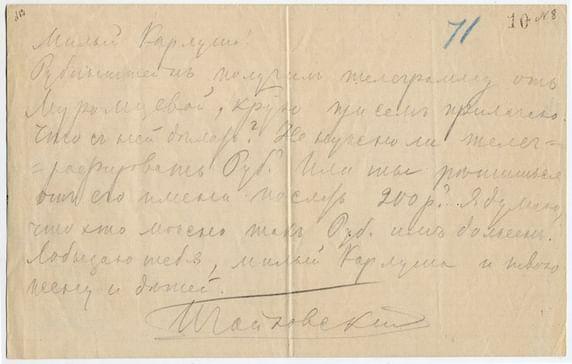 71
10 № 8
Милый Карлуша!
Рубинштейнъ получилъ телеграмму отъ
Муромцевой, крую при семъ прилагаю.
Что съ ней делать? Не нужно ли телег=
=рафировать Руб.? Или ты решишься
отъ его имени послать 200 р.? Я думаю,
что это можно такъ Руб.
Лобызаю тебя, милый Карлуша и твою
жену и детей.
П Чайковский